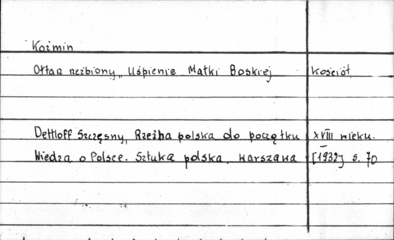 Koźmin
Ołtarz rzeźbiony „Uśpienie Matki Boskiej Kościół
Dettloff Szczęsny, Rzeźba polska do początku XVIII wieku.
Wiedza o Polsce. Sztuka polska, Warszawa [1932] s. 70